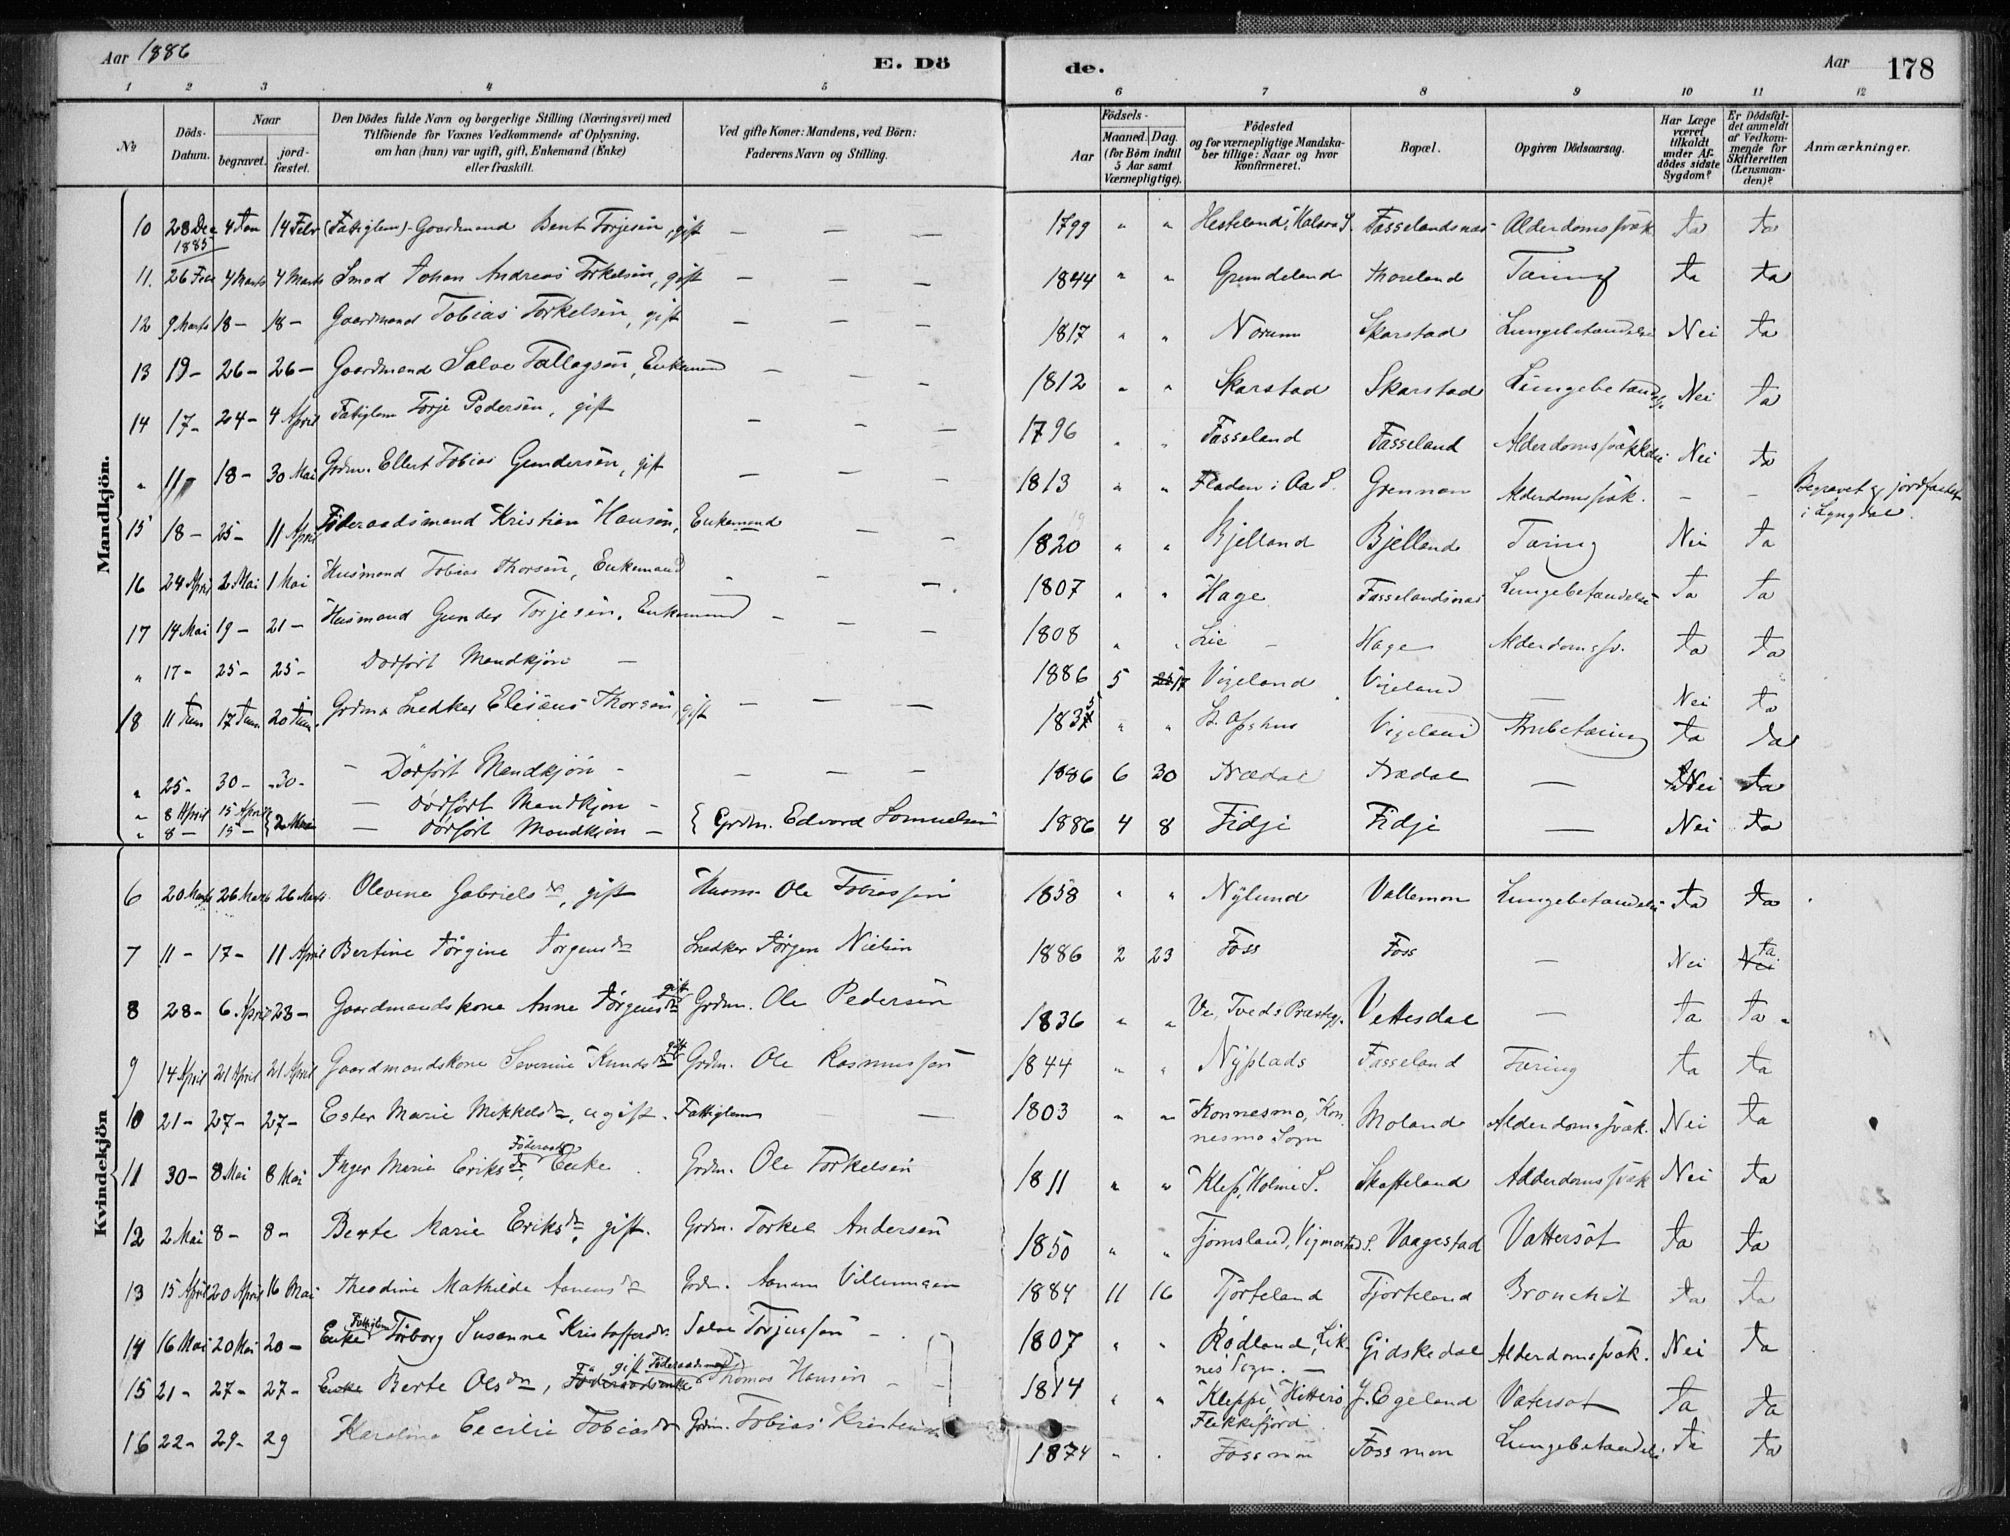 Aar 1886 E. Dö de. Aar 178
1 2 3 4 5 6 7 8 9 10 11 12
№ Döds-Datum. Naar begravet. jord-fæstet. Den Dödes fulde Navn og borgerlige Stilling (Næringsvei) med Tilföiende for Voxnes Vedkommende af Oplysning, om han (hun) var ugift, gift, Enkemand (Enke) eller fraskilt. Ved gifte Koner: Mandens, ved Börn: Faderens Navn og Stilling. Födsels- Aar Maaned. Dag. (for Børn indtil 5 Aar samt Værnepligtige). Födested og for værnepligtige Mandskaber tillige: Naar og hvor konfirmeret. Bopæl. Opgiven Dödsaarsag. Har Læge været tilkaldt under Afdödes sidste Sygdom? Er Dödsfaldet anmeldt af Vedkommende for Skifteretten (Lensmanden)? Anmærkninger.
Mandkjön.
10 28 Dec 1885 4 Jan 14 Febr (Fattiglem) Gaardmand Bent Torjesen, gift — — — 1799 " " Hesteland, Halsaa S. Fasselandsnæs Alderdomssvák Ja Ja
11. 26 Febr 4 Marts 4 Marts Smed Johan Andreas Torkelsen, gift — — — 1844 " " Grundeland Thoreland Tæring Ja Ja
12 9 Marts 18 - 18 - Gaardmand Tobias Torkelsen, gift — — — 1817 " " Norum Skarstad Lungebetændelse Nei Ja
13 19 - 26 - 26 - Gaardmand Salve Tallagsen, Enkemand — — — 1812 " " Skarstad Skarstad Lungebetændelse Nei Ja
14 17 - 24 - 4 April Fattiglem Torje Pedersen, gift — — — 1796 " " Fasseland Fasseland Alderdomssvækkelse Nei Ja
" 11 - 18 - 30 Mai Grdm. Ellert Tobias Gundersen, gift — — — 1813 " " Fladen i Aa S. Grennan Alderdomssvák. — — Begravet og jordfæstet i Lyngdal.
15 18 - 25 - 11 April Föderaadsmand Kristian Hansen, Enkemand — — 1820 " " Bjelland Bjelland Tæring Nei Ja
16 24 April 2 Mai 1 Mai Husmand Tobias Thorsen, Enkemand - — — 1807 " " Hage Fasselandsnæs Lungebetændelse Ja Ja
17 14 Mai 19 - 21 - Husmand Gunder Torjesen, Enkemand - — — 1808 " " Lie — Hage Alderdomssv. Ja Ja
" 17 - 25 - 25 - Dödfödt Mandkjön — 1886 5 17 Vigeland Vigeland — Nei Ja
18 11 Juni 17 Juni 20 Juni Grdm & Snedker Elisæus Thorsen, gift — — — 1835 " " Vigeland Brubetæring Ja Ja
" 25 - 30 - 30 - — Dödfödt Mandkjön — — — — 1886 6 30 Trædal Trædal — Nei Ja
" 8 April 15 April 2 Mai — dödfödt Mandkjön —
" 8 — 15 - — dödfödt Mandkjön — { Grdm. Edvard Samuelsen 1886 4 8 Fidje Fidje — Nei Ja
Kvindekjön
6 20 Marts 26 Marts 26 Marts Olevine Gabrielsdr, gift Husm. Ole Tobiassen 1858 " " Nylund Vallemon Lungebetændelse Ja Ja
7 11 - 17 - 11 April Bertine Jörgine Jörgensdr Snedker Jörgen Nielsen 1886 2 23 Foss Foss — Nei Ja Nei
8 28 - 6 April 28 - Gaardmandskone Anne Jörgensdr gift Grdm. Ole Pedersen 1836 " " Ve, Tveds Præstegj. Vettesdal — Ja Ja
9 14 April 21 April 21 April Gaardmandskone Severine Knudsdr gift Grdm. Ole Rasmussen 1844 " " Nyplads Fasseland Tæring Ja Ja
10 21 - 27 - 27 - Ester Marie Mikkelsdr, ugift. Fattiglem — — 1803 " " Konnesmo, Konnesmo Sogn Moland Alderdomssvæk. Nei Ja
11 30 - 8 Mai 8 Mai Inger Marie Eriksdr, Föderaads Enke Grdm. Ole Torkelsen 1811 " " Klep, Holme S. Skofteland Alderdomssvæk Nei Ja
12 2 Mai 8 - 8 - Berte Marie Eriksdr, gift. Grdm. Torkel Andersen 1850 " " Tjomsland, Vigmostad S. Vaagestad Vattersot Ja Ja
13 15 April 20 April 16 Mai Theodine Mathilde Aanensdr Grdm. Aanen Villumsen 1884 11 16 Tjörteland Tjörteland Bronchit Ja Ja
14 16 Mai 20 Mai 20 - Enke Fattiglem Torborg Susanne Kristoffersdr. Salve Torjussen — 1807 " " Rödland, Liknes Sogn. — Gidskedal Alderdomssvæk. Nei Ja
15 21 - 27 - 27 - Enke Berte Olsdr, gift Föderaadsmand Föderaadsenke Thomas Hansen — 1814 " " Kleppe, Hitterö Flekkefjord Y. Egeland Vatersot Ja Ja
16 22 - 29 - 29 Karoline Cecilie Tobiasdr Grdm. Tobias Kristensen 1874 " . Fossmon Fossmon Lungebetændelse Ja Ja